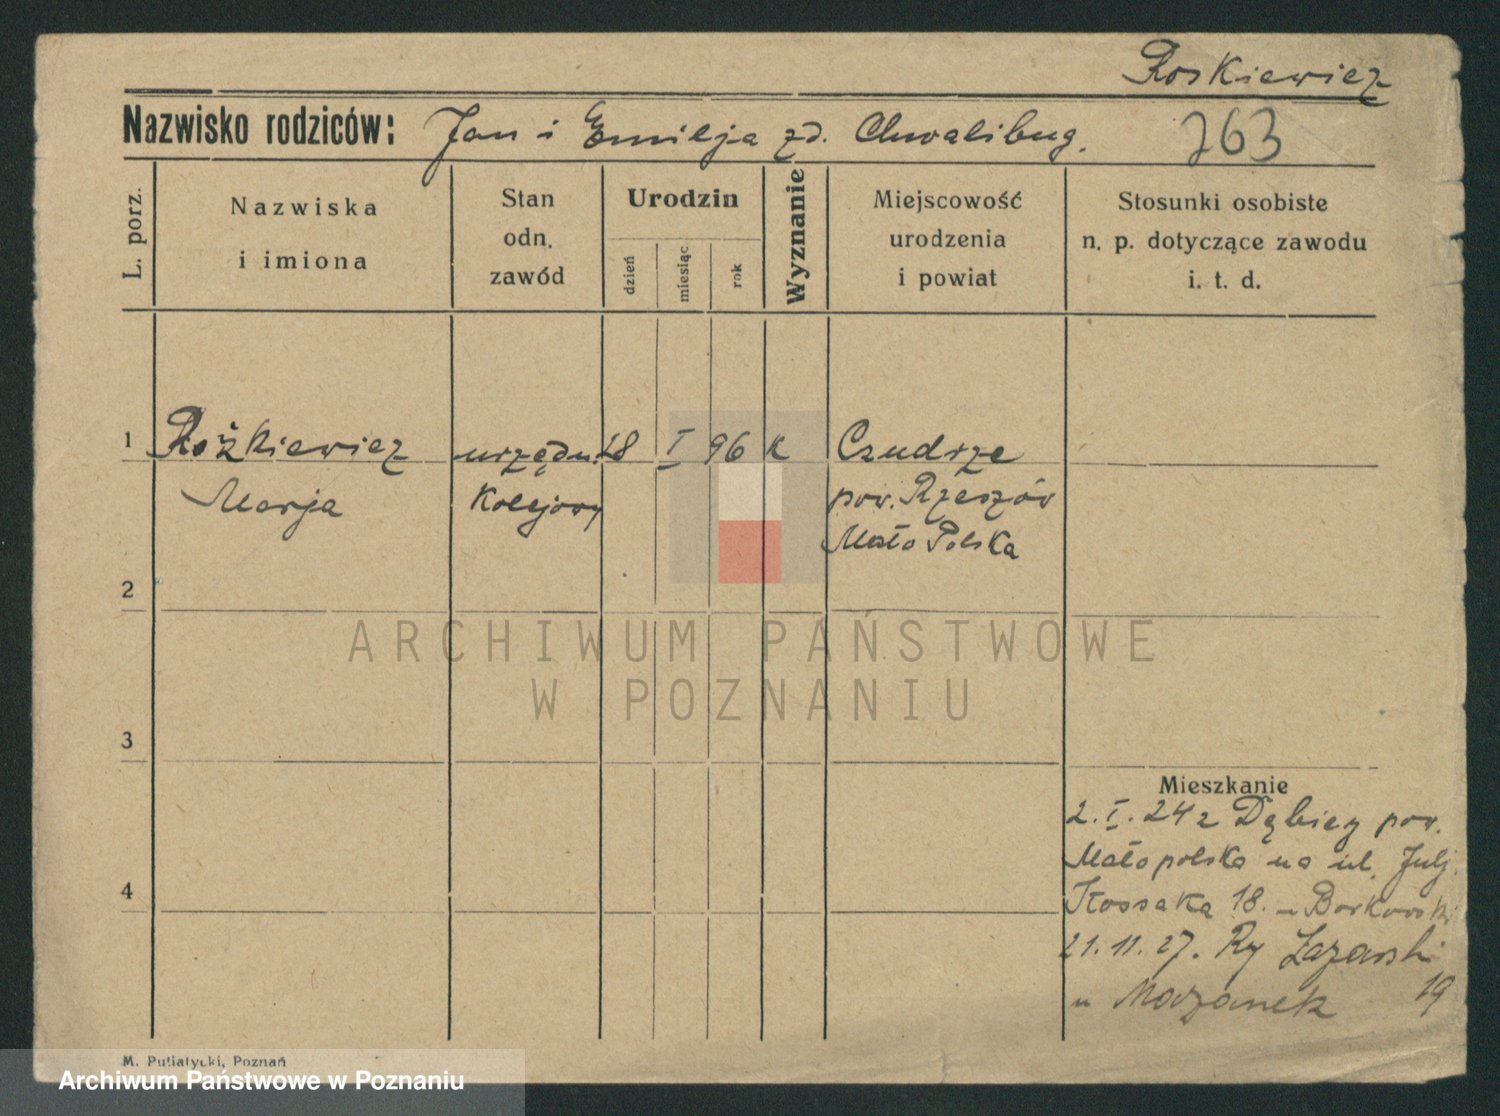 Roskiewicz
Nazwisko rodziców: Jan i Emilja zd. Chwalibug. 763
L. porz.
Nazwiska
i imiona
Stan
odn.
zawód
Urodzin
dzień
miesiąc
rok
Wyznanie
Miejscowość
urodzenia
i powiat
Stosunki osobiste
n. p. dotyczące zawodu
i. t. d.
1 Rożkiewicz urzędn. 18 I 96 k Czudrze
Marja Kolejowy pow. Rzeszów
Mało Polska
2
ARCHIWUM PAŃSTWOWE
W POZNANIU
3
Mieszkanie
2. I. 24 z Dębicy pow.
Małopolska na ul. Julj.
4
Kossaka 18. u Borkowski
21. 11. 27. Ry Łazarski
u Mazanek 19
M. Putiatycki, Poznań
Archiwum Państwowe w Poznaniu